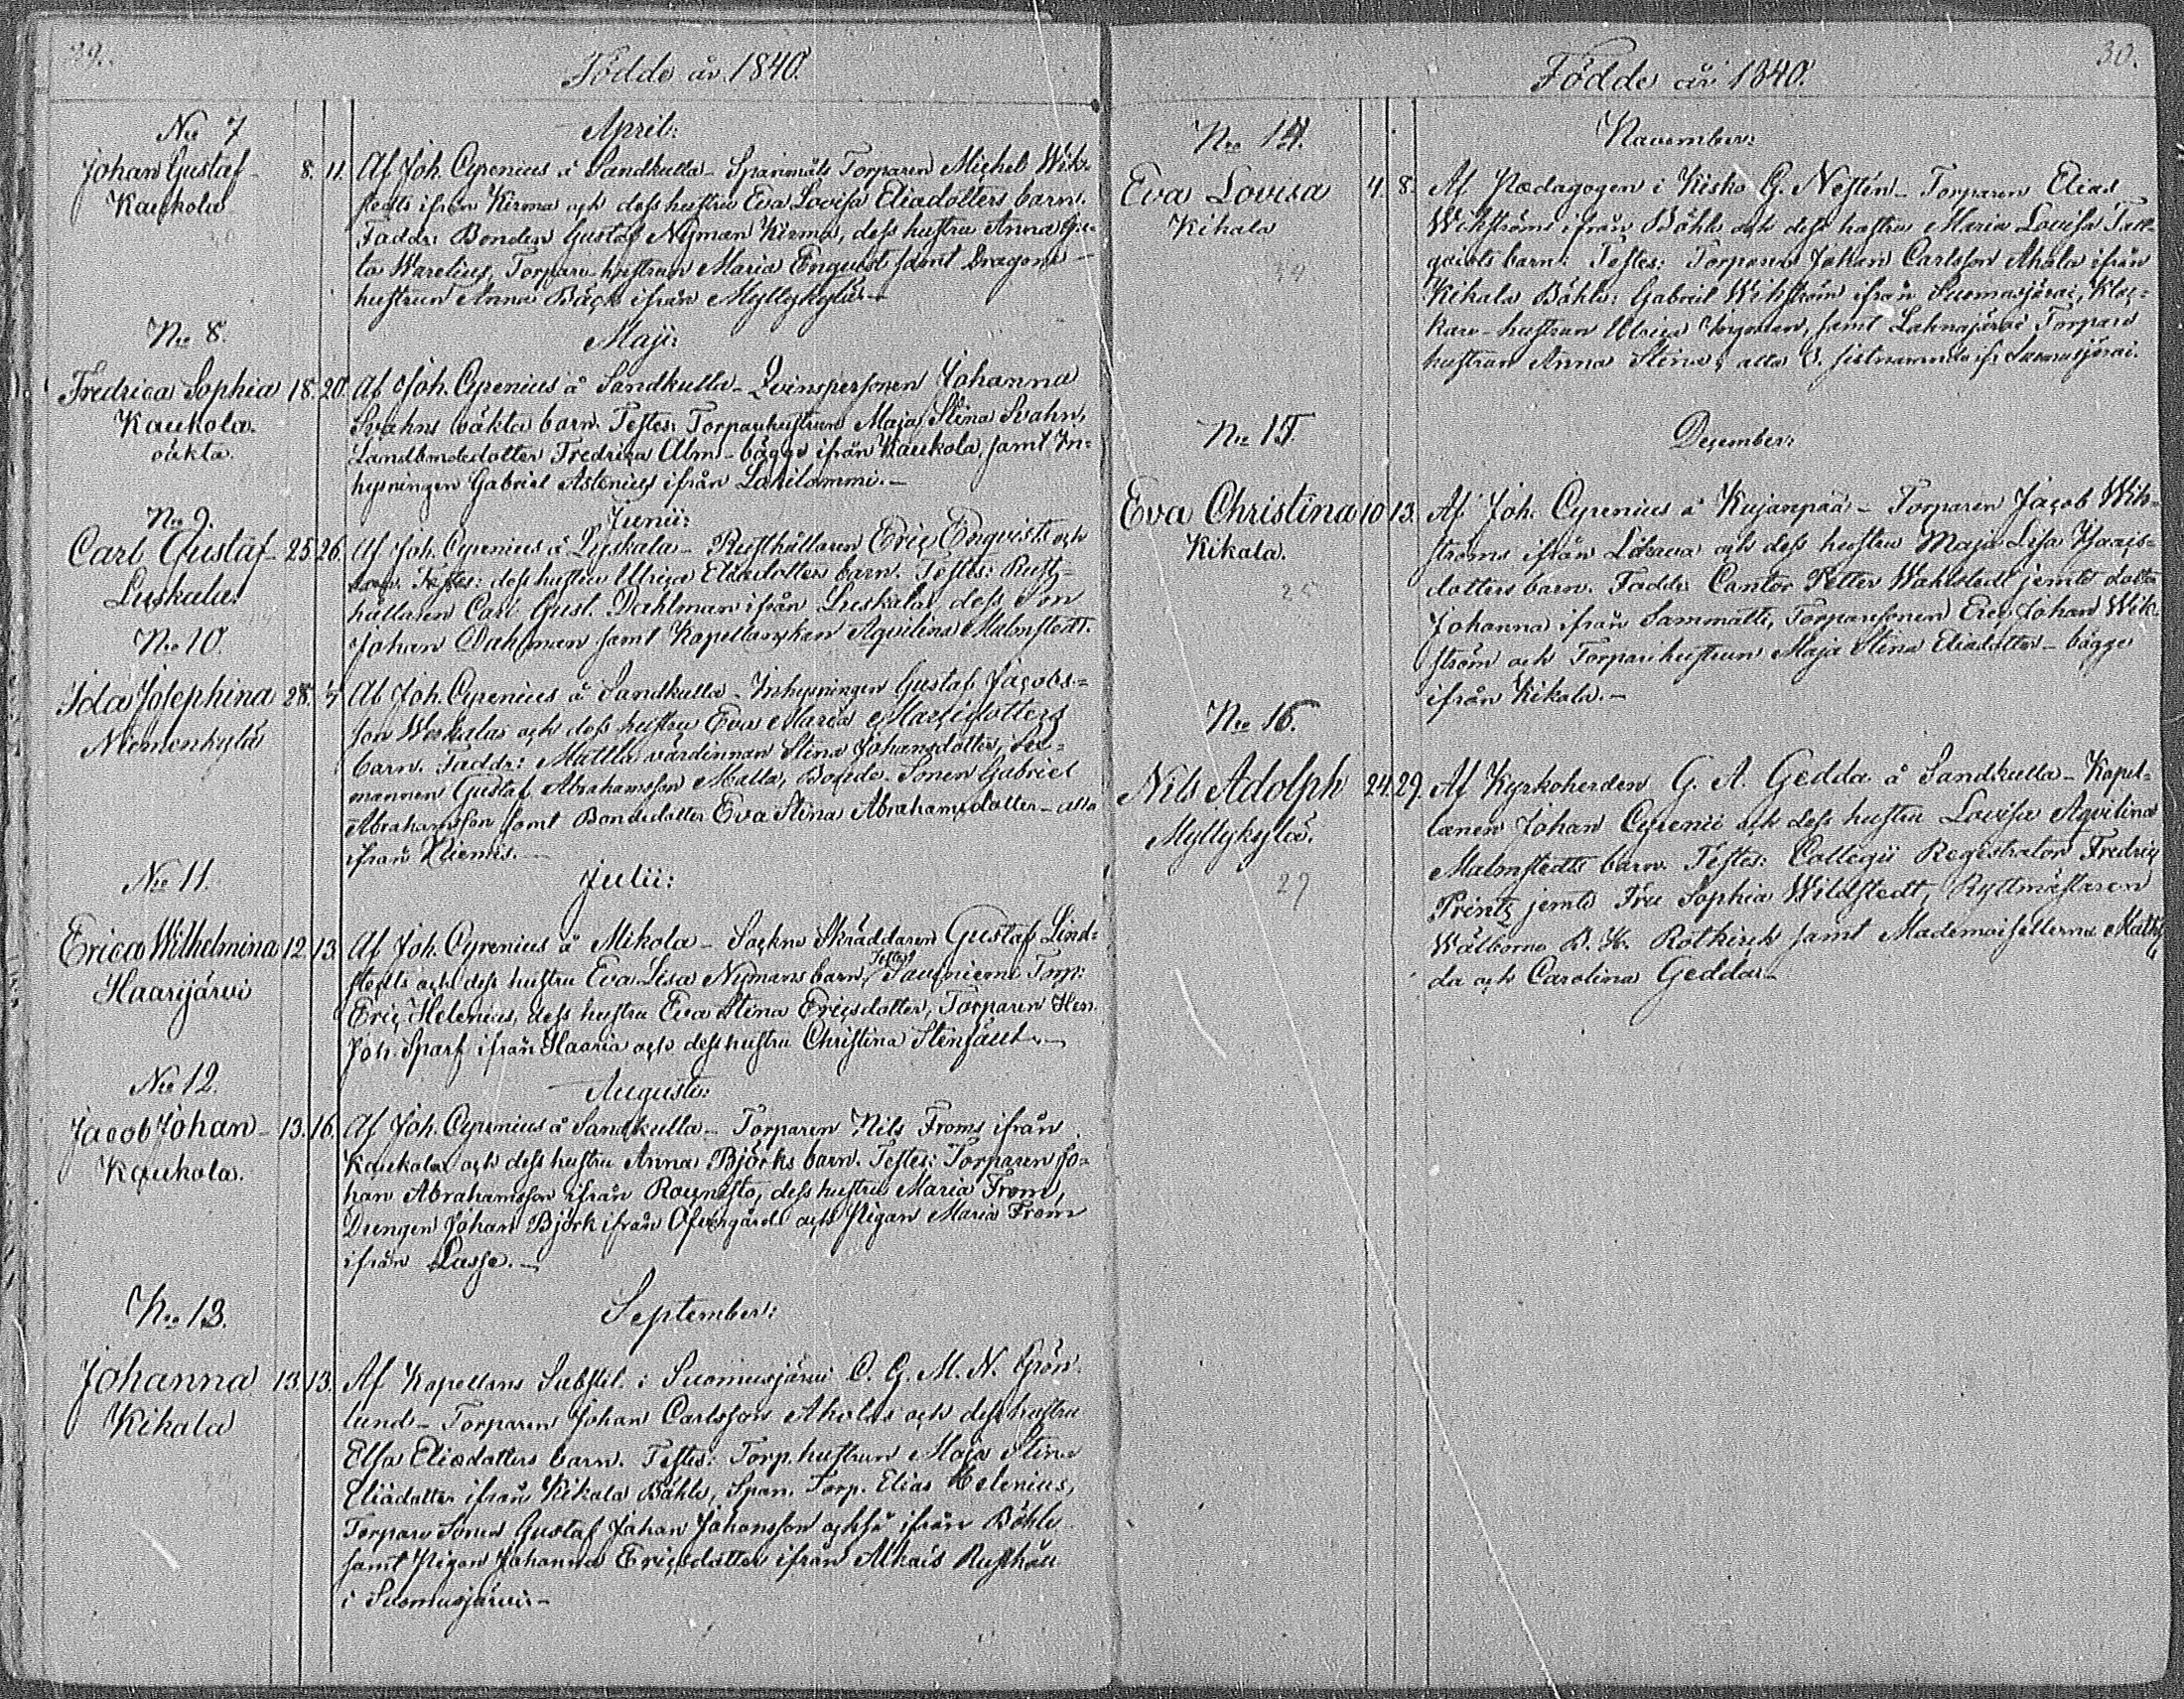 29.
Födde år 1840.
No 7
April:
Johan Gustaf
Kaukola
8. 11.
Af Joh. Cyrenius å Sandkulla - Spanmåls Torparen Michel Wik-
stedts ifrån Kirma och dess hustru Eva Lovisa Eliadotters barn.
Faddr: Bonden Gustaf Nyman Kirma, dess hustru Anna Gu-
ta Warelius, Torpare-hustrun Maria Enqvist samt Dragone
hustrun Anna Bäck ifrån Myllykylä.-
No 8.
Maji:
Fredrica Sophia
Kaukola.
oäkta.
18. 20.
Af Joh. Cyrenius å Sandkulla - Qvinspersonen Johanna
Svahns oäkta barn. Testes: Torparehustrun Maja Stina Svahn,
Landbondedotter Fredrica Alm - bägge ifrån Kaukola, samt In-
hysningen Gabriel Astenius ifrån Lahilammi.-
No 9.
Junii:
Carl Gustaf
Luskala.
25 26.
Af Joh. Cyrenius å Lyskala - Rusthållaren Eric Enqvists och
dess hustru Ulrica Eliadotters barn. Testes: Rust-
hållaren Carl Gust. Dahlman ifrån Luskala, dess Son
Johan Dahlman samt Kapellanskan Aqvilina Malmstedt.
No 10.
Ida Josephina
Niemenkylä
28.
Af Joh. Cyrenius å Sandkulla - Inhysningen Gustaf Jacobs-
son Weskalas och dess hustru Eva Maria
barn. Faddr: Mattla värdinnan Stina Johansdotter,
mannen Gustaf Abrahamsson Matla, Bonde-Sonen Gabriel
Abrahamsson samt Bondedotter Eva Stina Abrahamsdotter - alla
ifrån Niemis.-
No 11.
Julii:
Erica Wilhelmina
Haarijärvi
12. 13.
Af Joh. Cyrenius å Mikola - Sockne Skräddaren Gustaf Lind-
stedts och dess hustru Eva Lisa Nymans barn. Testes: Torp:
Eric Helenius, dess hustru Eva Stina Ericsdotter, Torparen Hen.
Joh. Sparf ifrån Haaria och dess hustru Christina Stenfält.-
No 12.
Augusti:
Jacob Johan
Kaukola.
13. 16.
Af Joh. Cyrenius å Sandkulla - Torparen Nils Froms ifrån
Kaukola och dess hustru Anna Björks barn. Testes: Torparen Jo-
han Abrahamsson ifrån Rounisto, dess hustru Maria From,
Drengen Johan Björk ifrån Öfvergård och Pigan Maria From
ifrån Lasse.-
No 13.
September:
Johanna
Kikala
13. 13.
Af Kapellans Substit. i Suomusjärvi C. G. M. N. Grön-
lund - Torparen Johan Carlsson Aholas och dess hustru
Elsa Eliædotters barn. Testes: Torp. hustrun Maja Stina
Eliädotter ifrån Kikala Båhle, Span. Torp. Elias Helenius,
Torpare Sonen Gustaf Johan Johansson också ifrån Båhle
samt Pigan Johanna Ericsdotter ifrån Ahais Rusthåll
i Suomusjärvi.-
30.
Födde år 1840.
No 14.
November:
Eva Lovisa
Kikala
4. 8.
Af Pædagogen i Kisko G. Nestén - Torparen Elias
Wikströms ifrån Båhle och dess hustru Maria Lovisa Tall-
qvists barn: Testes: Torparen Johan Carlsson Ahola ifrån
Kikala Båhle: Gabriel Wikström ifrån Suomusjärvi, Kloc-
kare-hustrun Ulrica samt Lahnajärvi Torpare
hustrun Anna Stina, alla 3. sistnämnda ifr. Suomusjärvi.
No 15.
December:
Eva Christina
Kikala.
10 13.
25
Af Joh. Cyrenius å Kujanpää - Torparen Jacob Wik-
ströms ifrån och dess hustru Maja Lisa Isaacs-
dotters barn. Faddr: Cantor Petter Wahlstedt jemte dotter
Johanna ifrån Sammatti, Torparesonen Eric Johan Wik-
ström och Torparehustrun Maja Stina Eliadotter - bägge
ifrån Kikala.-
No 16.
Nils Adolph
Myllykylä.
24. 29.
29
Af Kyrkoherden G. A. Gedda å Sandkulla - Kapel-
lanen Johan Cyrenii och dess hustru Lovisa Aqvilina
Malmstedts barn. Testes: Collegii Registrator Fredric
Printz jemte Fru Sophia Wildstedt, Ryttmästaren
Wälborne B. H. Rotkirch samt Mademoisellerna Mathil
da och Carolina Gedda.-